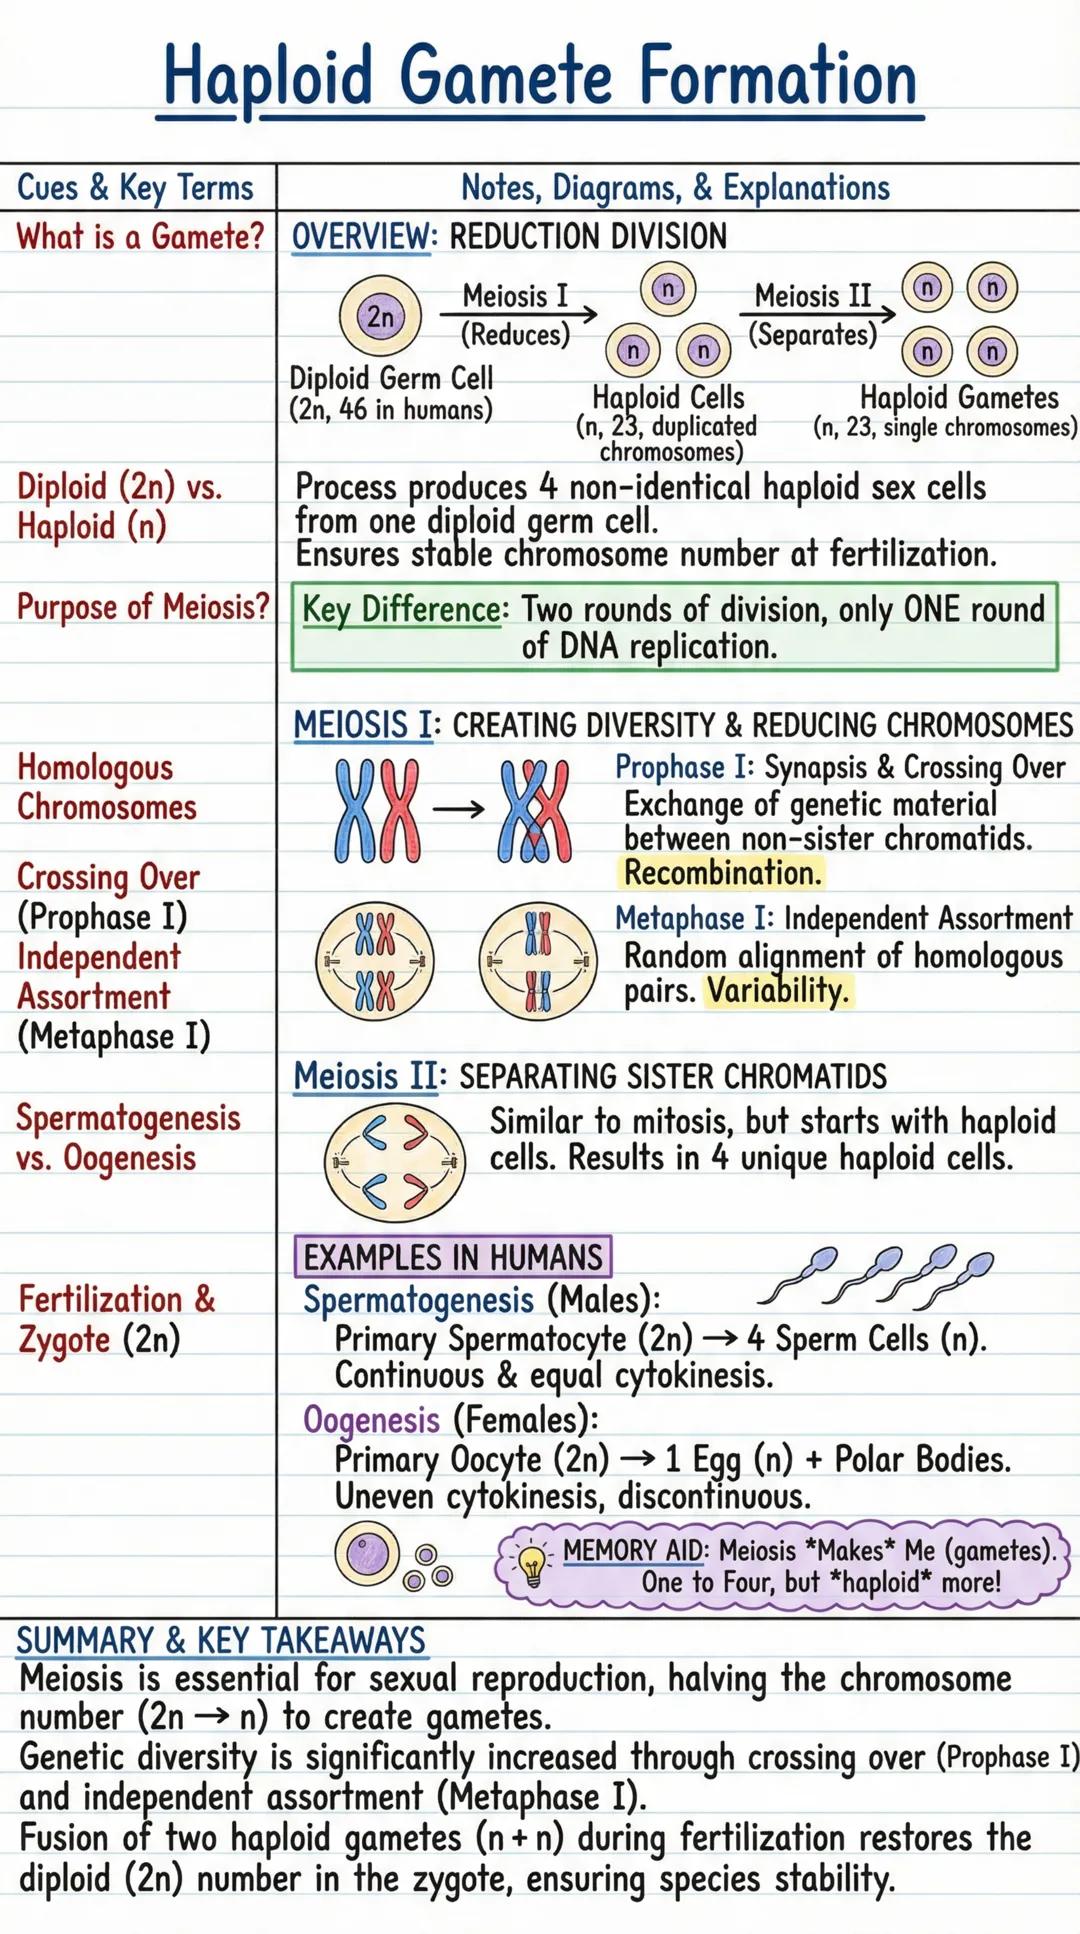 Haploid Gamete Formation
Cues & Key Terms
Notes, Diagrams, & Explanations
What is a Gamete?
OVERVIEW: REDUCTION DIVISION
2n
Meiosis I
(Reduces)
n
n
n
Meiosis II
(Separates)
n
n
n
n
Diploid Germ Cell
(2n, 46 in humans)
Haploid Cells
(n, 23, duplicated
chromosomes)
Haploid Gametes
(n, 23, single chromosomes)
Diploid (2n) vs.
Haploid (n)
Process produces 4 non-identical haploid sex cells
from one diploid germ cell.
Ensures stable chromosome number at fertilization.
Purpose of Meiosis?
Key Difference: Two rounds of division, only ONE round
of DNA replication.
MEIOSIS I: CREATING DIVERSITY & REDUCING CHROMOSOMES
Homologous
Chromosomes
Prophase I: Synapsis & Crossing Over
Exchange of genetic material
between non-sister chromatids.
Recombination.
Crossing Over
(Prophase I)
Independent
Assortment
(Metaphase I)
Metaphase I: Independent Assortment
Random alignment of homologous
pairs. Variability.
Meiosis II: SEPARATING SISTER CHROMATIDS
Spermatogenesis
vs. Oogenesis
Similar to mitosis, but starts with haploid
cells. Results in 4 unique haploid cells.
EXAMPLES IN HUMANS
Fertilization &
Zygote (2n)
Spermatogenesis (Males):
Primary Spermatocyte (2n) → 4 Sperm Cells (n).
Continuous & equal cytokinesis.
Oogenesis (Females):
Primary Oocyte (2n) → 1 Egg (n) + Polar Bodies.
Uneven cytokinesis, discontinuous.
MEMORY AID: Meiosis *Makes* Me (gametes).
One to Four, but *haploid* more!
SUMMARY & KEY TAKEAWAYS
Meiosis is essential for sexual reproduction, halving the chromosome
number (2n → n) to create gametes.
Genetic diversity is significantly increased through crossing over (Prophase I)
and independent assortment (Metaphase I).
Fusion of two haploid gametes (n + n) during fertilization restores the
diploid (2n) number in the zygote, ensuring species stability.